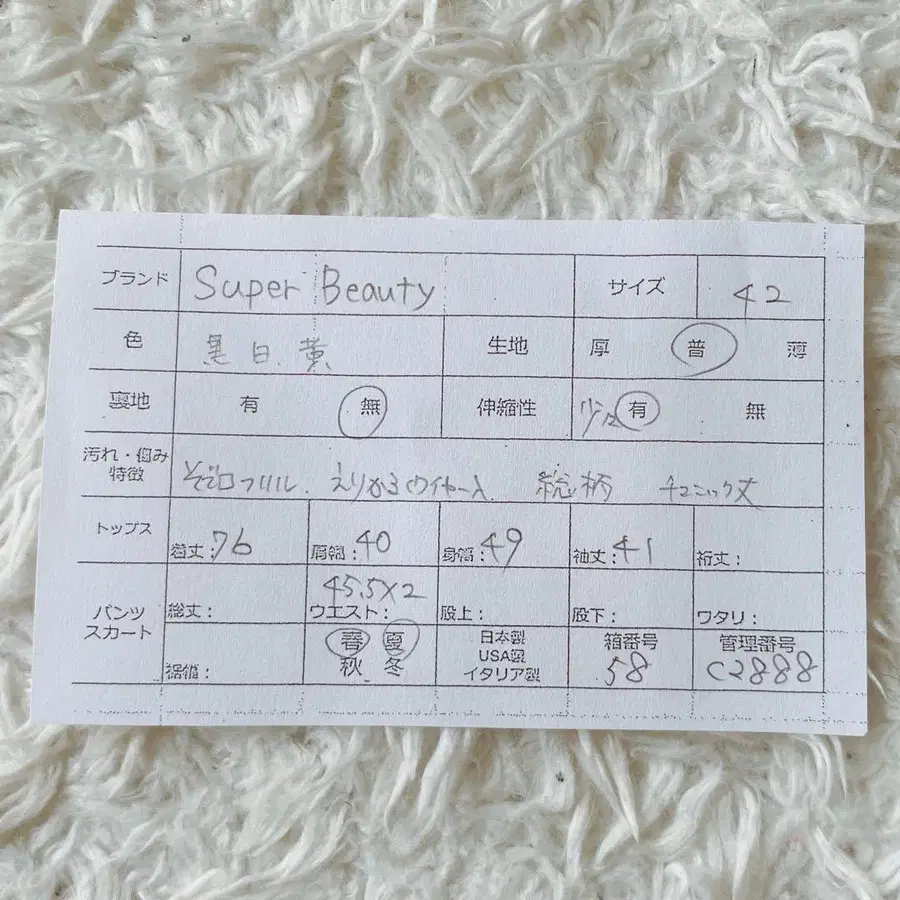 ブランド Super Beauty サイズ 42
色 黒 白、黄 生地 厚 普 薄
裏地 有 無 伸縮性 少々 有 無
汚れ・傷み
特徴 そで口フリル、えりからワイヤー入、総柄 チュニック丈
トップス 着丈:76 肩幅:40 身幅:49 袖丈:41 裄丈:
パンツ
スカート 総丈: 45.5×2 ウエスト: 股上: 股下: ワタリ:
裾幅: 春 夏 秋 冬 日本製 USA製 イタリア製 箱番号 58 管理番号 C2888